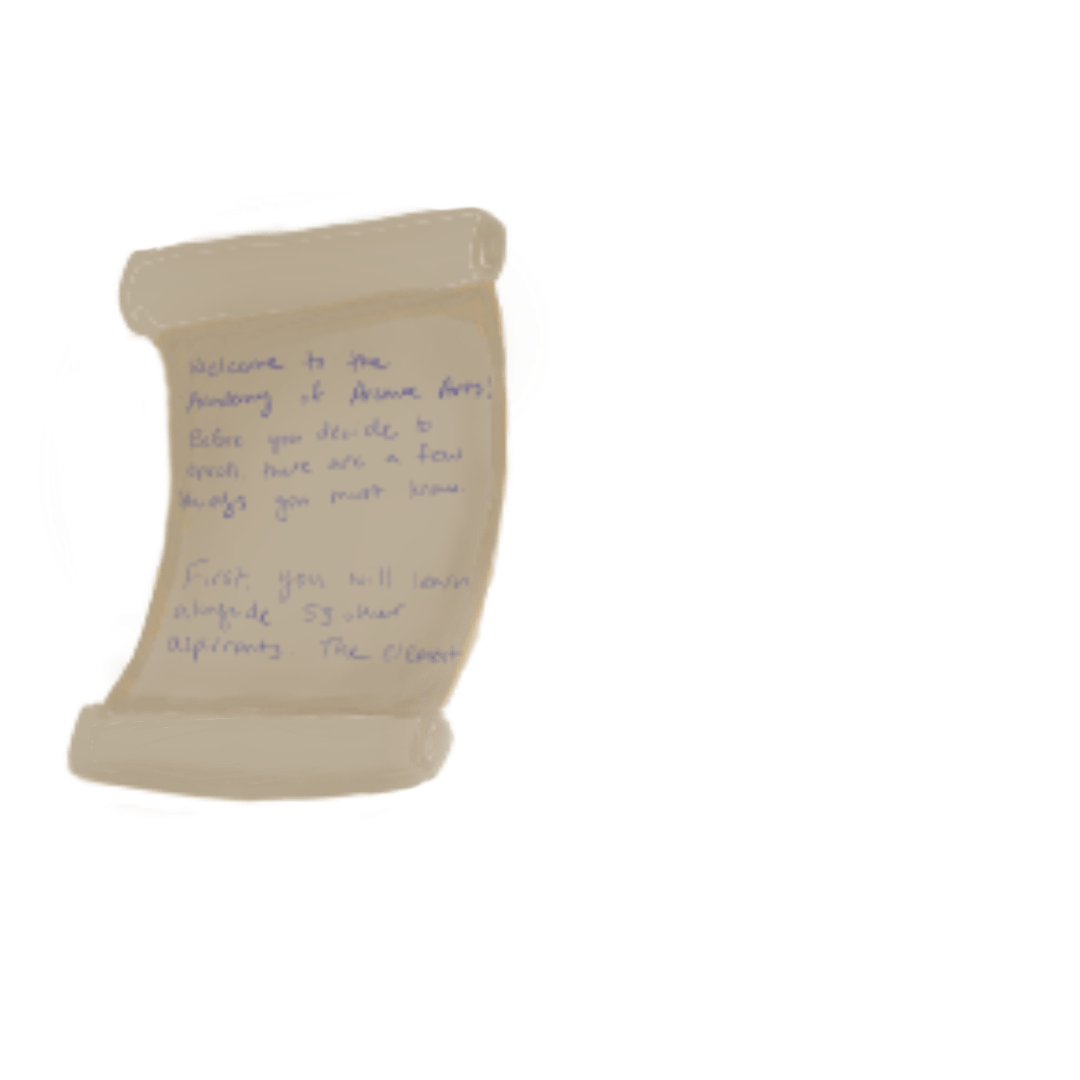 Welcome to the
Academy of Arcane Arts!
Before you decide to
enroll, there are a few
things you must know.
First, you will learn
alongside 53 other
aspirants. The eldest